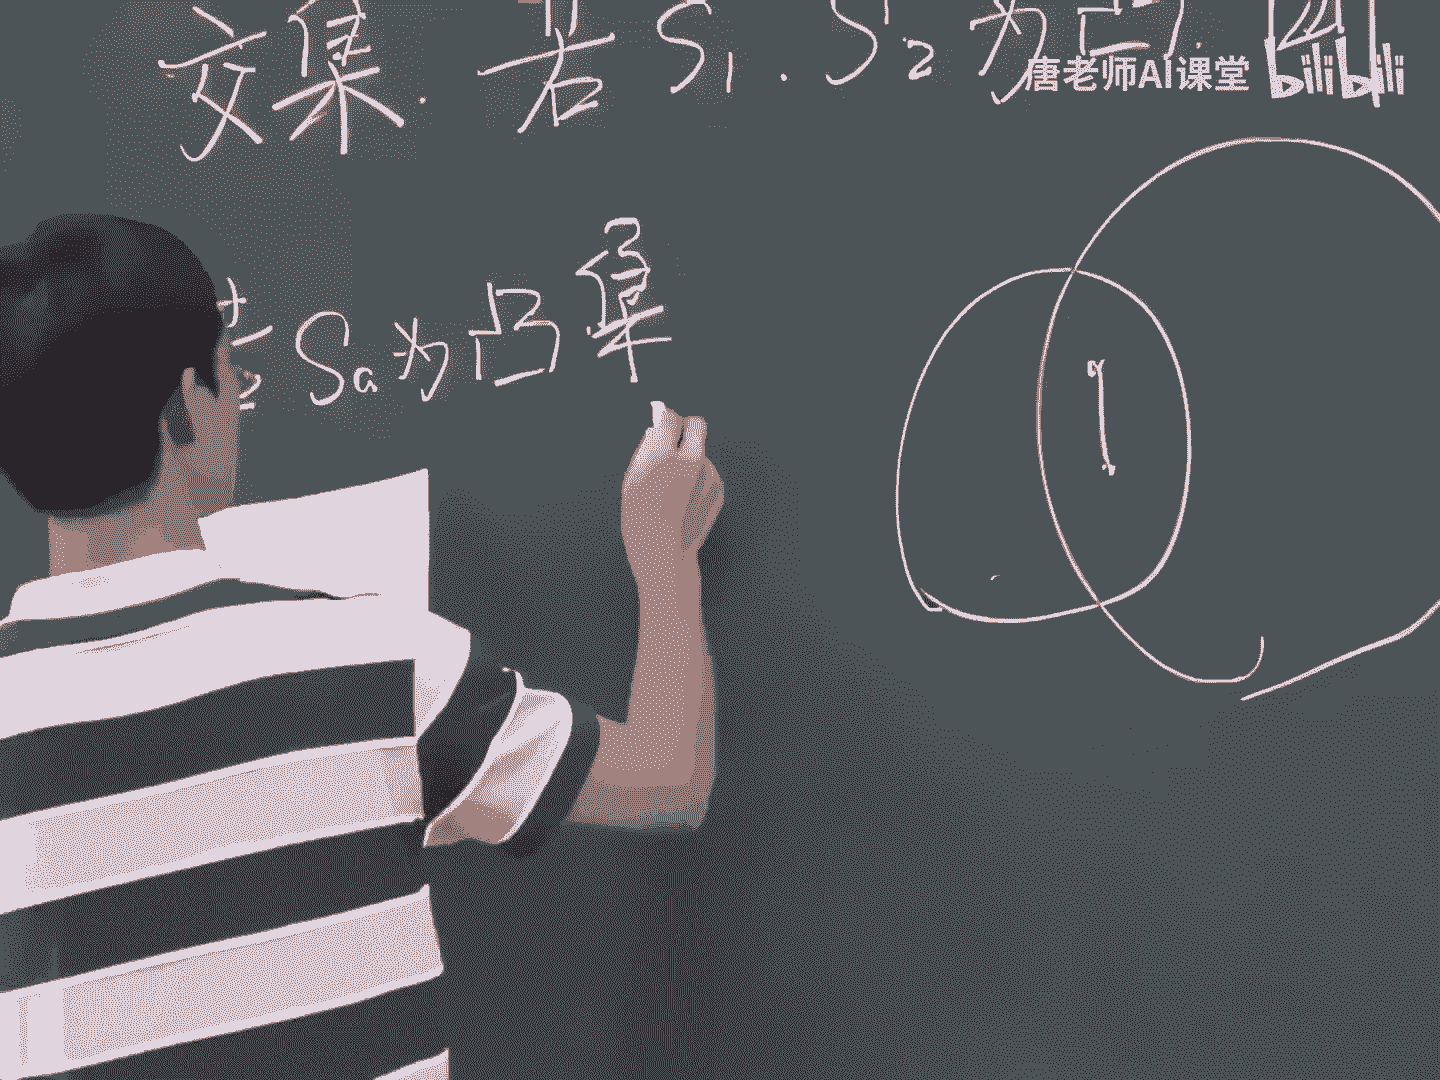 交集. 若 S₁. S₂ 为凸
唐老师AI课堂 bilibili
若 Sa 为凸集